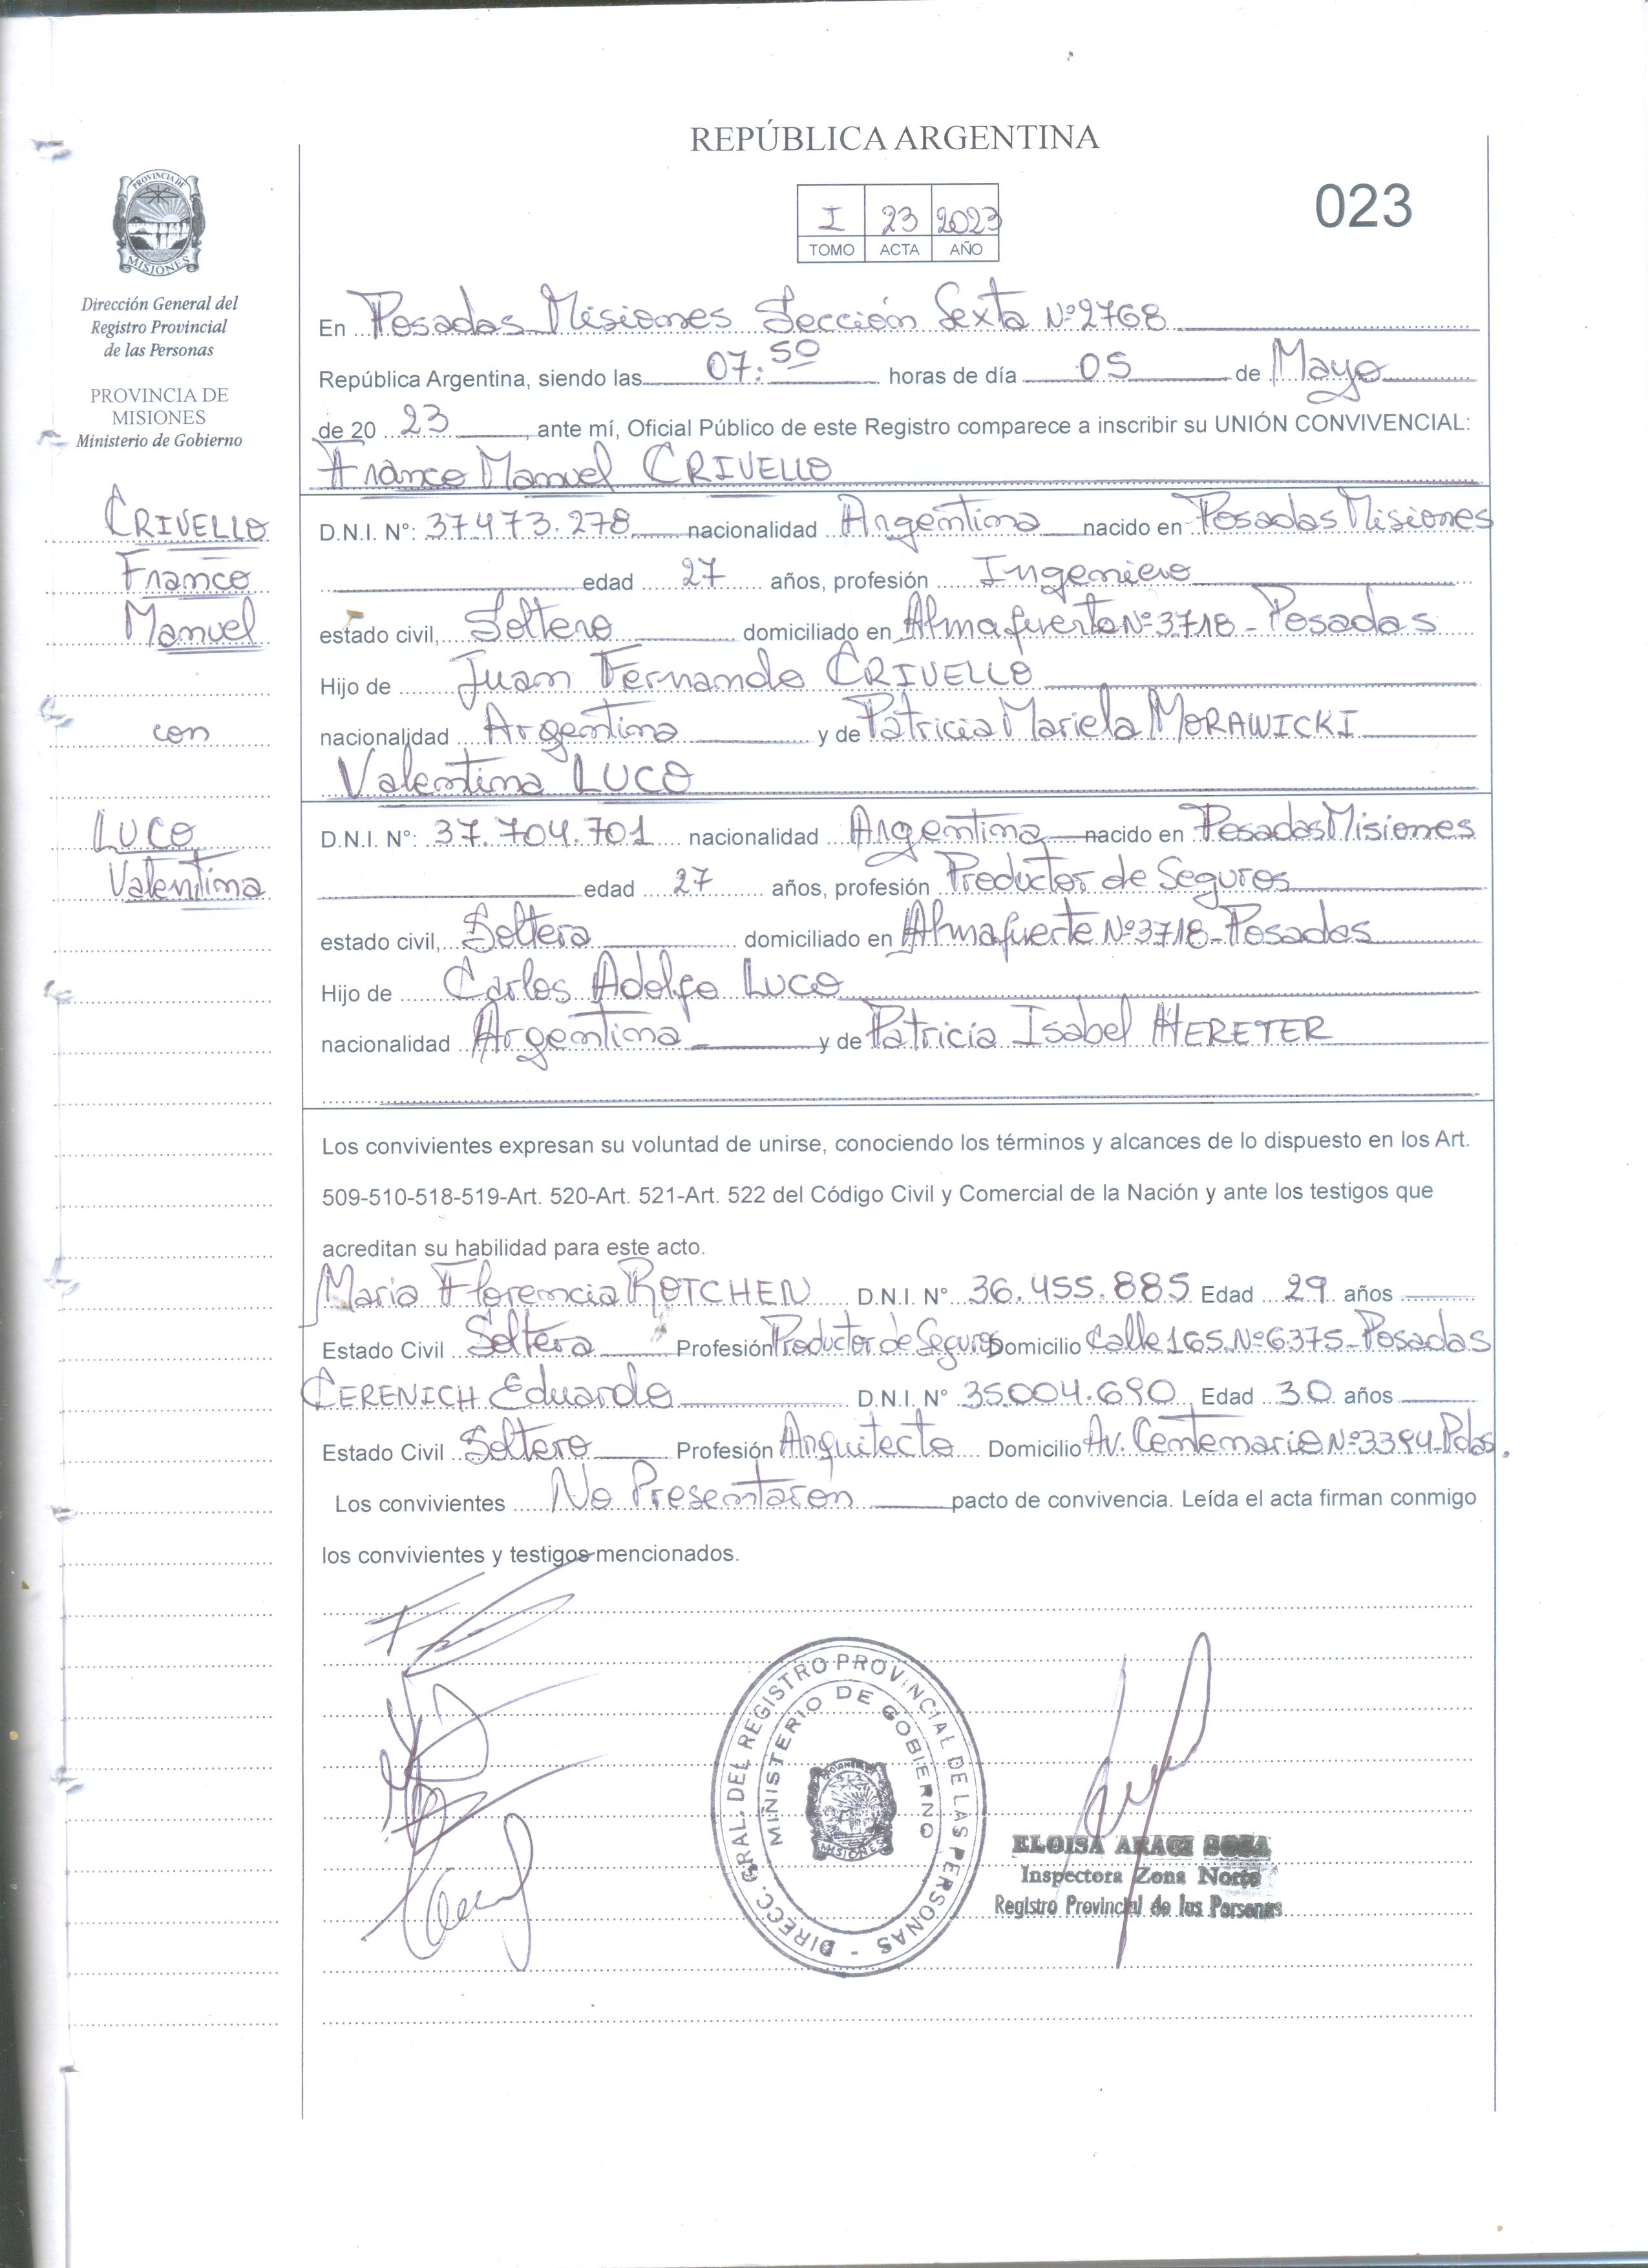 REPÚBLICA ARGENTINA
023
I 23 2023
TOMO ACTA AÑO
PROVINCIA DE
MISIONES
Dirección General del
Registro Provincial
de las Personas
PROVINCIA DE
MISIONES
Ministerio de Gobierno
CRIVELLO
Franco
Manuel
con
LUCO
Valentina
En Posadas Misiones Sección Sexta Nº 2768
República Argentina, siendo las 07:50 horas de día 05 de Mayo
de 20 23, ante mí, Oficial Público de este Registro comparece a inscribir su UNIÓN CONVIVENCIAL:
Franco Manuel CRIVELLO
D.N.I. N°: 37473.278 nacionalidad Argentina nacido en Posadas Misiones
edad 27 años, profesión Ingeniero
estado civil, Soltero domiciliado en Almafuerte Nº 3718 - Posadas
Hijo de Juan Fernando CRIVELLO
nacionalidad Argentina y de Patricia Mariela MORAWICKI
Valentina LUCO
D.N.I. N°: 37.704.701 nacionalidad Argentina nacido en Posadas Misiones
edad 27 años, profesión Productor de Seguros
estado civil, Soltera domiciliado en Almafuerte Nº 3718 - Posadas
Hijo de Carlos Adolfo LUCO
nacionalidad Argentina y de Patricia Isabel HERETER
Los convivientes expresan su voluntad de unirse, conociendo los términos y alcances de lo dispuesto en los Art.
509-510-518-519-Art. 520-Art. 521-Art. 522 del Código Civil y Comercial de la Nación y ante los testigos que
acreditan su habilidad para este acto.
Maria Florencia ROTCHEN D.N.I. N° 36.455.885 Edad 29 años
Estado Civil Soltera Profesión Productor de Seguros Domicilio Calle 165 Nº 6375 - Posadas
CERENICH Eduardo D.N.I. N° 35.004.690 Edad 30 años
Estado Civil Soltero Profesión Arquitecto Domicilio Av. Centenario Nº 3394 - Pdas.
Los convivientes No Presentaron pacto de convivencia. Leída el acta firman conmigo
los convivientes y testigos mencionados.
DIRECC. GRAL. DEL REGISTRO PROVINCIAL DE LAS PERSONAS -
MINISTERIO DE GOBIERNO
MISIONES
ELOISA ARACI SOSA
Inspectora Zona Norte
Registro Provincial de las Personas